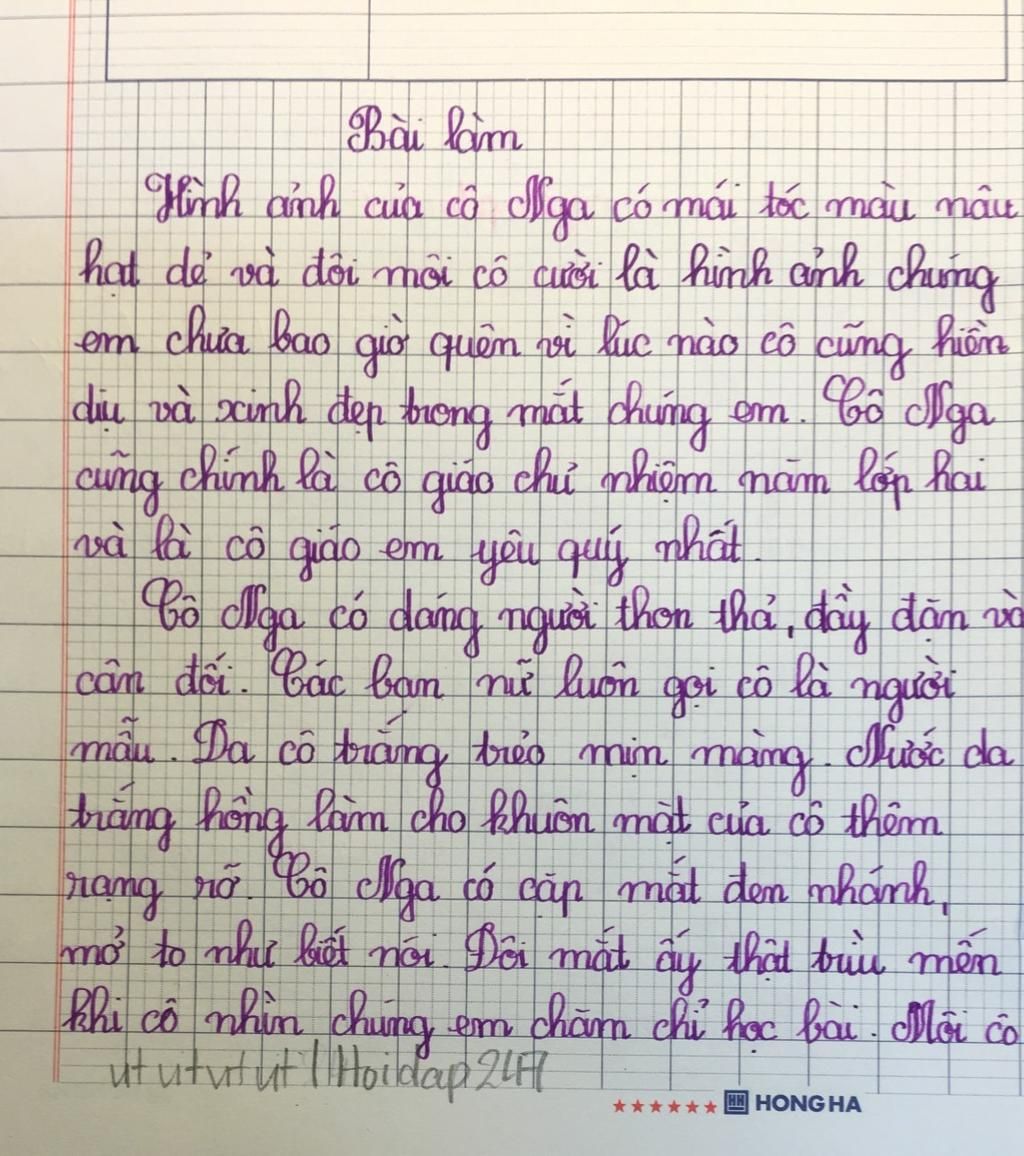 Bài làm
Hình ảnh của cô Nga có mái tóc màu nâu
hạt dẻ và đôi môi cô cười là hình ảnh chúng
em chưa bao giờ quên vì lúc nào cô cũng hiền
dịu và xinh đẹp trong mắt chúng em. Cô Nga
cũng chính là cô giáo chủ nhiệm năm lớp hai
và là cô giáo em yêu quý nhất.
Cô Nga có dáng người thon thả, đầy đặn và
cân đối. Các bạn nữ luôn gọi cô là người
mẫu. Da cô trắng trẻo mịn màng. Nước da
trắng hồng làm cho khuôn mặt của cô thêm
rạng rỡ. Cô Nga có cặp mắt đen nhánh,
mở to như biết nói. Đôi mắt ấy thật trìu mến
khi cô nhìn chúng em chăm chỉ học bài. Môi cô
utututut | Hoidap247
HH HONG HA